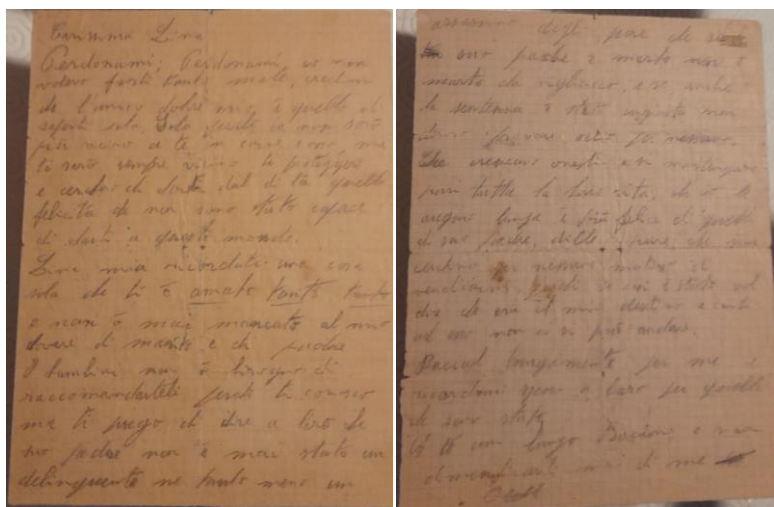 Carissima Lina
Perdonami, Perdonami, io non
volevo farti tanto male, credimi
che l'unico dolore mio, è quello di
saperti sola. Sola perchè io non sarò
più vicino a te in carne e ossa ma
ti sarò sempre vicino ti proteggerò
e cercherò di darti dal di là quella
felicità che non sono stato capace
di darti a questo mondo.
Lina mia ricordati una cosa
sola che ti ò amato tanto tanto
e non ò mai mancato al mio
dovere di marito e di padre
I bambini non ò bisogno di
raccomandarteli perchè ti conosco
ma ti prego di dire a loro che
suo padre non è mai stato un
delinquente ne tanto meno un
assassino digli pure che se
suo padre è morto non è
morto da vigliacco, e se anche
la sentenza è stata ingiusta non
devono provare odio per nessuno.
Che crescano onesti e si mantengano
puri tutta la loro vita, che io le
auguro lunga e più felice di quella
di suo padre, dille pure, che non
cerchino per nessun motivo di
vendicarmi, perchè se così è stato vuol
dire che era il mio destino e contro
ad esso non ci si può andare.
Baciali lungamente per me e
ricordami sempre a loro per quello
che sono stato
A te un lungo Bacione e non
dimenticarti mai di me